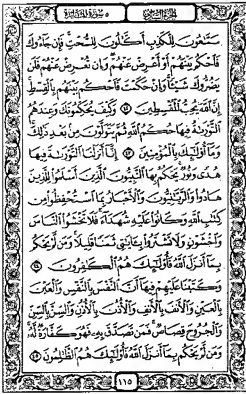 الجزء السادس ٥ سورة المائدة
سَمَّٰعُونَ لِلْكَذِبِ أَكَّٰلُونَ لِلسُّحْتِ فَإِن جَآءُوكَ
فَٱحْكُم بَيْنَهُمْ أَوْ أَعْرِضْ عَنْهُمْ وَإِن تُعْرِضْ عَنْهُمْ فَلَن
يَضُرُّوكَ شَيْـًٔا وَإِنْ حَكَمْتَ فَٱحْكُم بَيْنَهُم بِٱلْقِسْطِ
إِنَّ ٱللَّهَ يُحِبُّ ٱلْمُقْسِطِينَ ٤٢ وَكَيْفَ يُحَكِّمُونَكَ وَعِندَهُمُ
ٱلتَّوْرَىٰةُ فِيهَا حُكْمُ ٱللَّهِ ثُمَّ يَتَوَلَّوْنَ مِنۢ بَعْدِ ذَٰلِكَ
وَمَآ أُو۟لَٰٓئِكَ بِٱلْمُؤْمِنِينَ ٤٣ إِنَّآ أَنزَلْنَا ٱلتَّوْرَىٰةَ فِيهَا
هُدًى وَنُورٌ يَحْكُمُ بِهَا ٱلنَّبِيُّونَ ٱلَّذِينَ أَسْلَمُوا۟ لِلَّذِينَ
هَادُوا۟ وَٱلرَّبَّٰنِيُّونَ وَٱلْأَحْبَارُ بِمَا ٱسْتُحْفِظُوا۟ مِن
كِتَٰبِ ٱللَّهِ وَكَانُوا۟ عَلَيْهِ شُهَدَآءَ فَلَا تَخْشَوُا۟ ٱلنَّاسَ
وَٱخْشَوْنِ وَلَا تَشْتَرُوا۟ بِـَٔايَٰتِى ثَمَنًا قَلِيلًا وَمَن لَّمْ يَحْكُم
بِمَآ أَنزَلَ ٱللَّهُ فَأُو۟لَٰٓئِكَ هُمُ ٱلْكَٰفِرُونَ ٤٤
وَكَتَبْنَا عَلَيْهِمْ فِيهَآ أَنَّ ٱلنَّفْسَ بِٱلنَّفْسِ وَٱلْعَيْنَ
بِٱلْعَيْنِ وَٱلْأَنفَ بِٱلْأَنفِ وَٱلْأُذُنَ بِٱلْأُذُنِ وَٱلسِّنَّ بِٱلسِّنِّ
وَٱلْجُرُوحَ قِصَاصٌ فَمَن تَصَدَّقَ بِهِۦ فَهُوَ كَفَّارَةٌ لَّهُۥ
وَمَن لَّمْ يَحْكُم بِمَآ أَنزَلَ ٱللَّهُ فَأُو۟لَٰٓئِكَ هُمُ ٱلظَّٰلِمُونَ ٤٥
١١٥